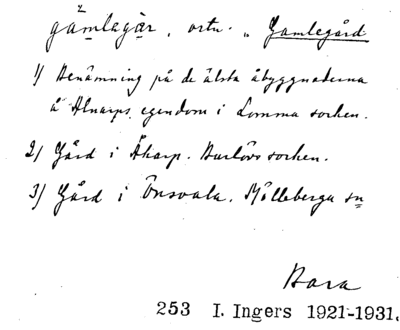 gamlegår, ortn. „ Gamlegård
1) Benämning på de älsta åbyggnaderna
å Alnarps egendom i Lomma socken.
2) Gård i Åkarp. Burlövs socken.
3) Gård i Önsvala. Mölleberga sn
Bara
253 I. Ingers 1921-1931.